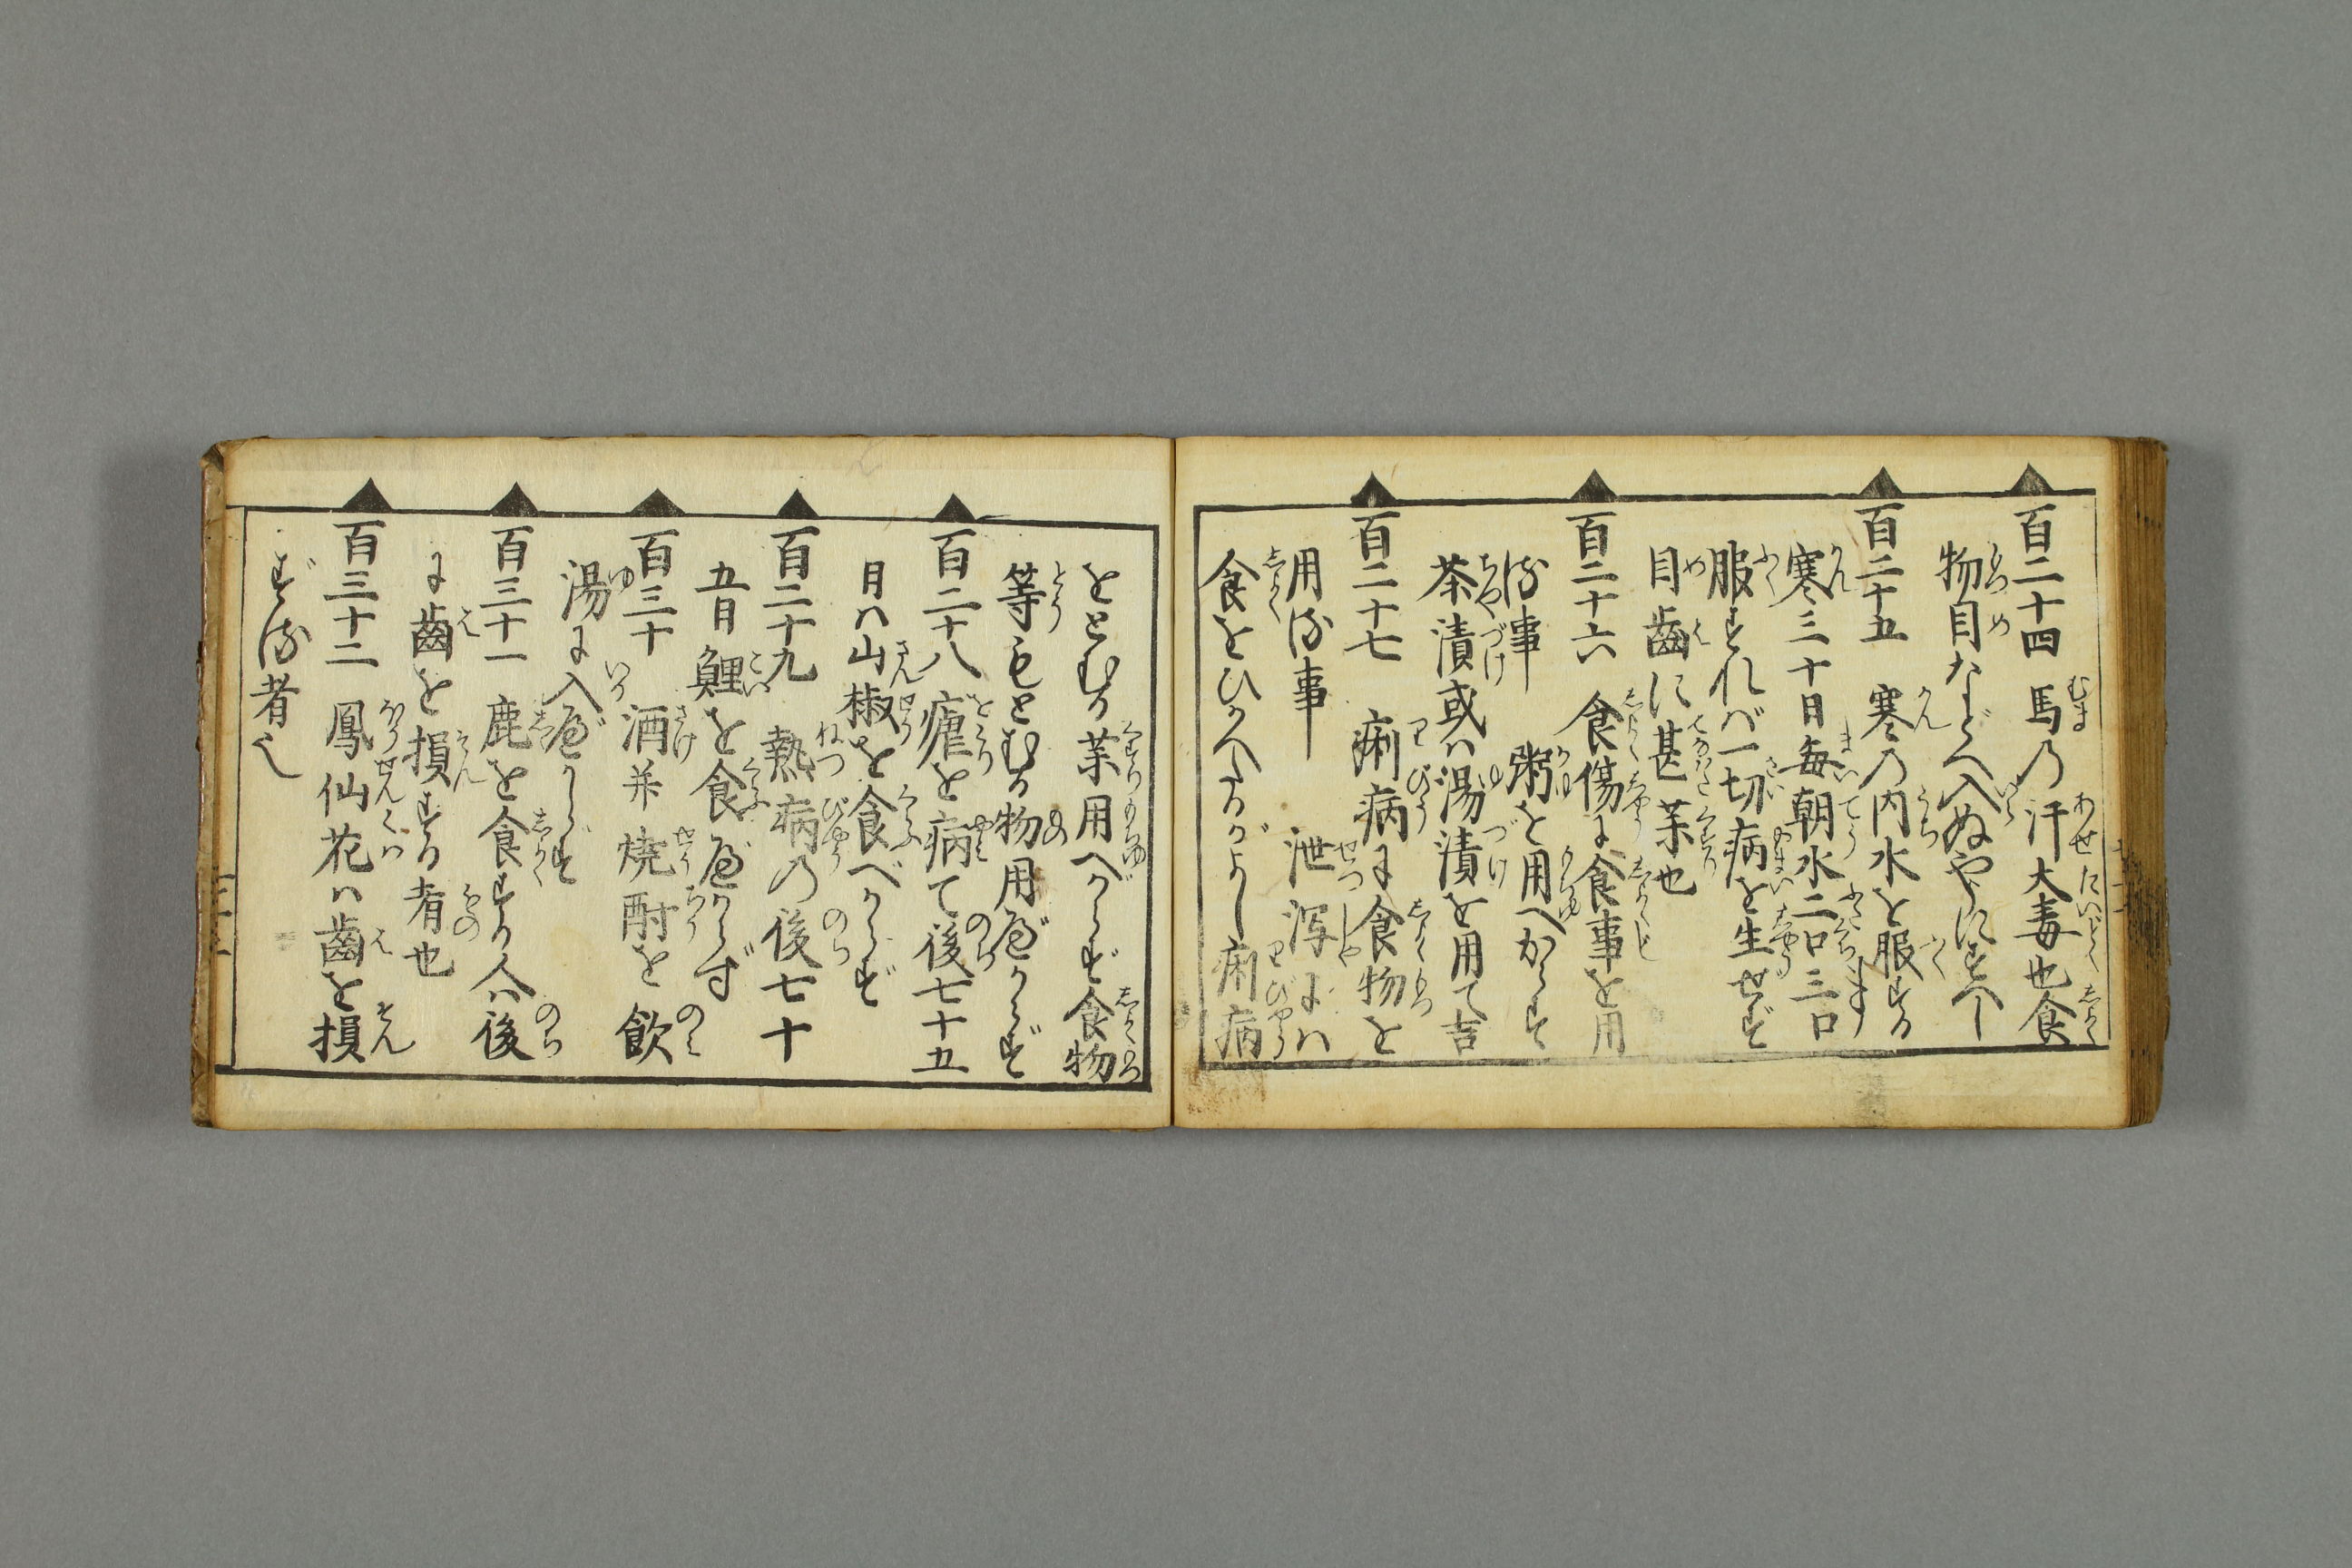 百二十四 馬の汗大毒也食
物目などへ入ぬやうにすべし
百二十五 寒の内水を服する
寒三十日毎朝水二口三口
服すれば一切病を生せず
目歯に甚薬也
百二十六 食傷に食事を用
る事 粥を用へからす
茶漬或は湯漬を用て吉
百二十七 痢病に食物を
用る事 泄瀉には
食をひかへたるがよし痢病
をとむる薬用へからず食物
等もとむる物用べからず
百二十八 瘧を病て後七十五
日は山椒を食べからず
百二十九 熱病の後七十
五日鯉を食べからず
百三十 酒并焼酎を飲
湯に入べからす
百三十一 鹿を食する人は後
に歯を損する者也
百三十二 鳳仙花は歯を損
ずる者也